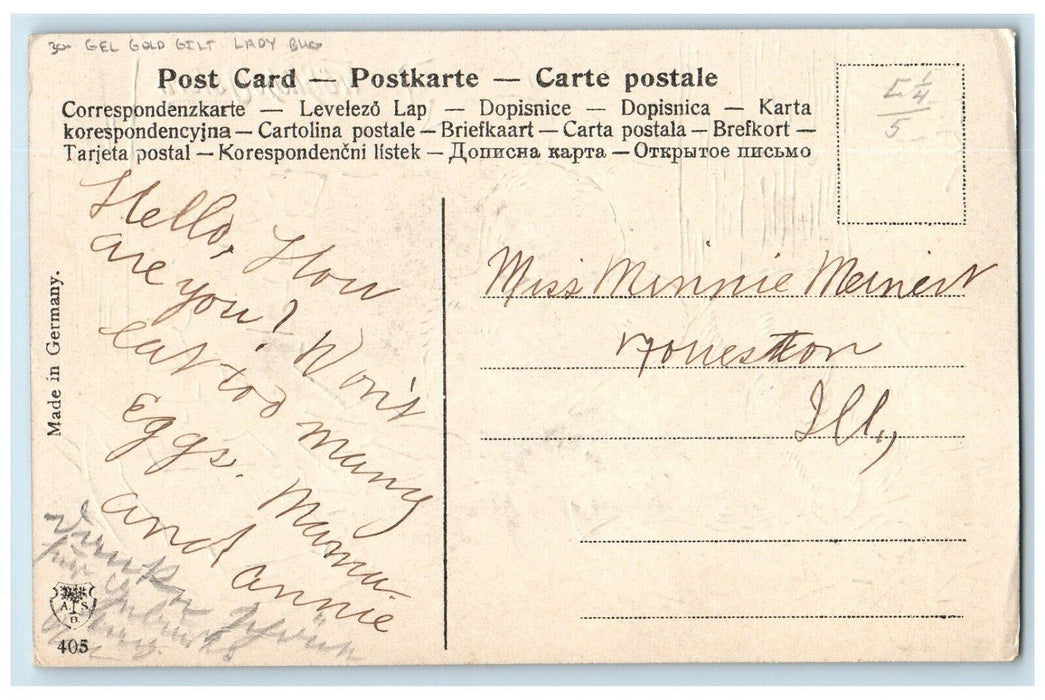 30- GEL GOLD GILT LADY BUG
Post Card — Postkarte — Carte postale
Correspondenzkarte — Levelező Lap — Dopisnice — Dopisnica — Karta
korespondencyjna — Cartolina postale — Briefkaart — Carta postala — Brefkort —
Tarjeta postal — Korespondenční lístek — Дописна карта — Открытое письмо
E 1/4
5
Hello, How
are you? Won't
eat too many
eggs. Mama.
and annie
Miss Minnie Meinert
Ill.,
Made in Germany.
A. S.
B.
405